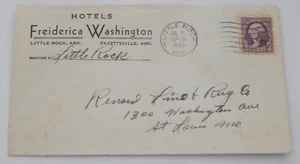 HOTELS
Freiderica Washington
LITTLE ROCK, ARK. FAYETTEVILLE, ARK.
WRITTEN AT Little Rock
LITTLE ROCK
ARK.
Renard Lino & Rug Co
1300 Washington Ave
St Louis Mo